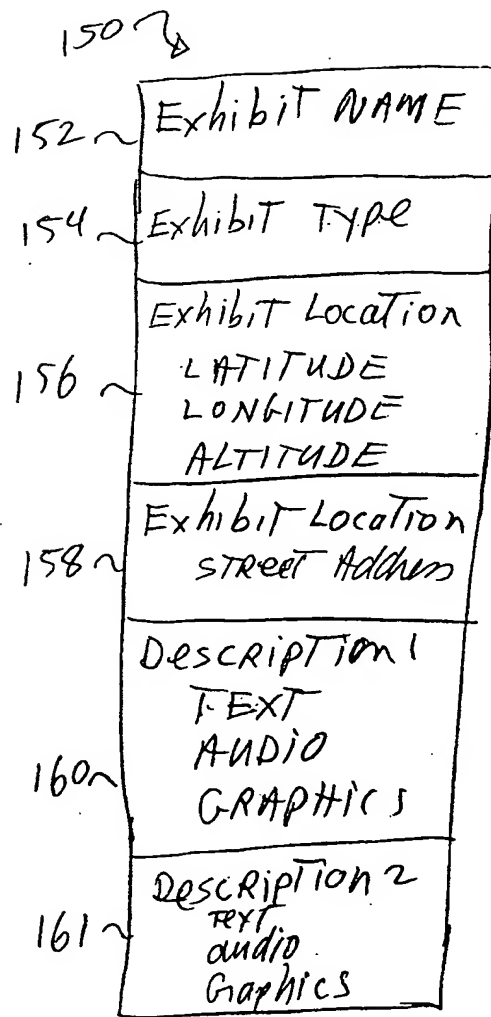 150
152 Exhibit NAME
154 Exhibit Type
Exhibit Location
156 LATITUDE
LONGITUDE
ALTITUDE
Exhibit Location
158 STREET Address
Description 1
TEXT
AUDIO
160 GRAPHICS
Description 2
161 Text
audio
Graphics